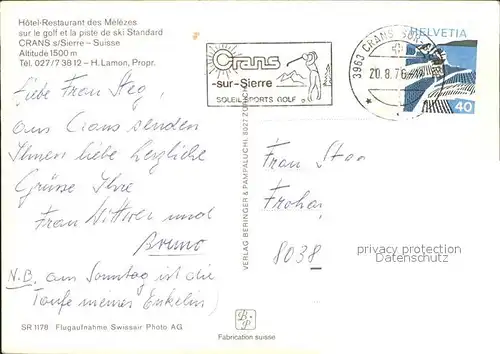 Hôtel-Restaurant des Mélèzes
sur le golf et la piste de ski Standard
CRANS s/Sierre – Suisse
Altitude 1500 m
Tél. 027/7 38 12 – H. Lamon, Propr.
Crans
-sur-Sierre
SOLEIL SPORTS GOLF
3963 CRANS-SUR-
20.8.76
HELVETIA
40
Liebe Frau Steg
aus Crans senden
Ihnen liebe herzliche
Grüsse Ihre
Frau Dittwer und
Bruno
N.B. am Sonntag ist die
Taufe meiner Enkelin)
VERLAG BERINGER & PAMPALUCHI 8027 ZÜRICH
Frau
8038
privacy protection
Datenschutz
SR 1178 Flugaufnahme Swissair Photo AG.
B+P
Fabrication suisse